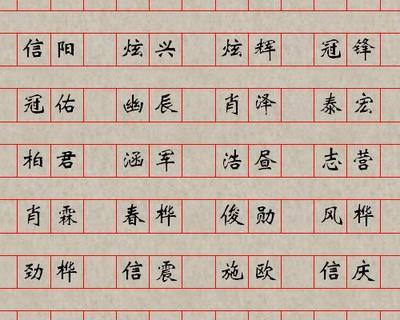 信阳 炫兴 炫辉 冠锋
冠佑 幽辰 肖泽 泰宏
柏君 涵军 浩昼 志营
肖霖 春桦 俊勋 风桦
劲桦 信震 施欧 信庆